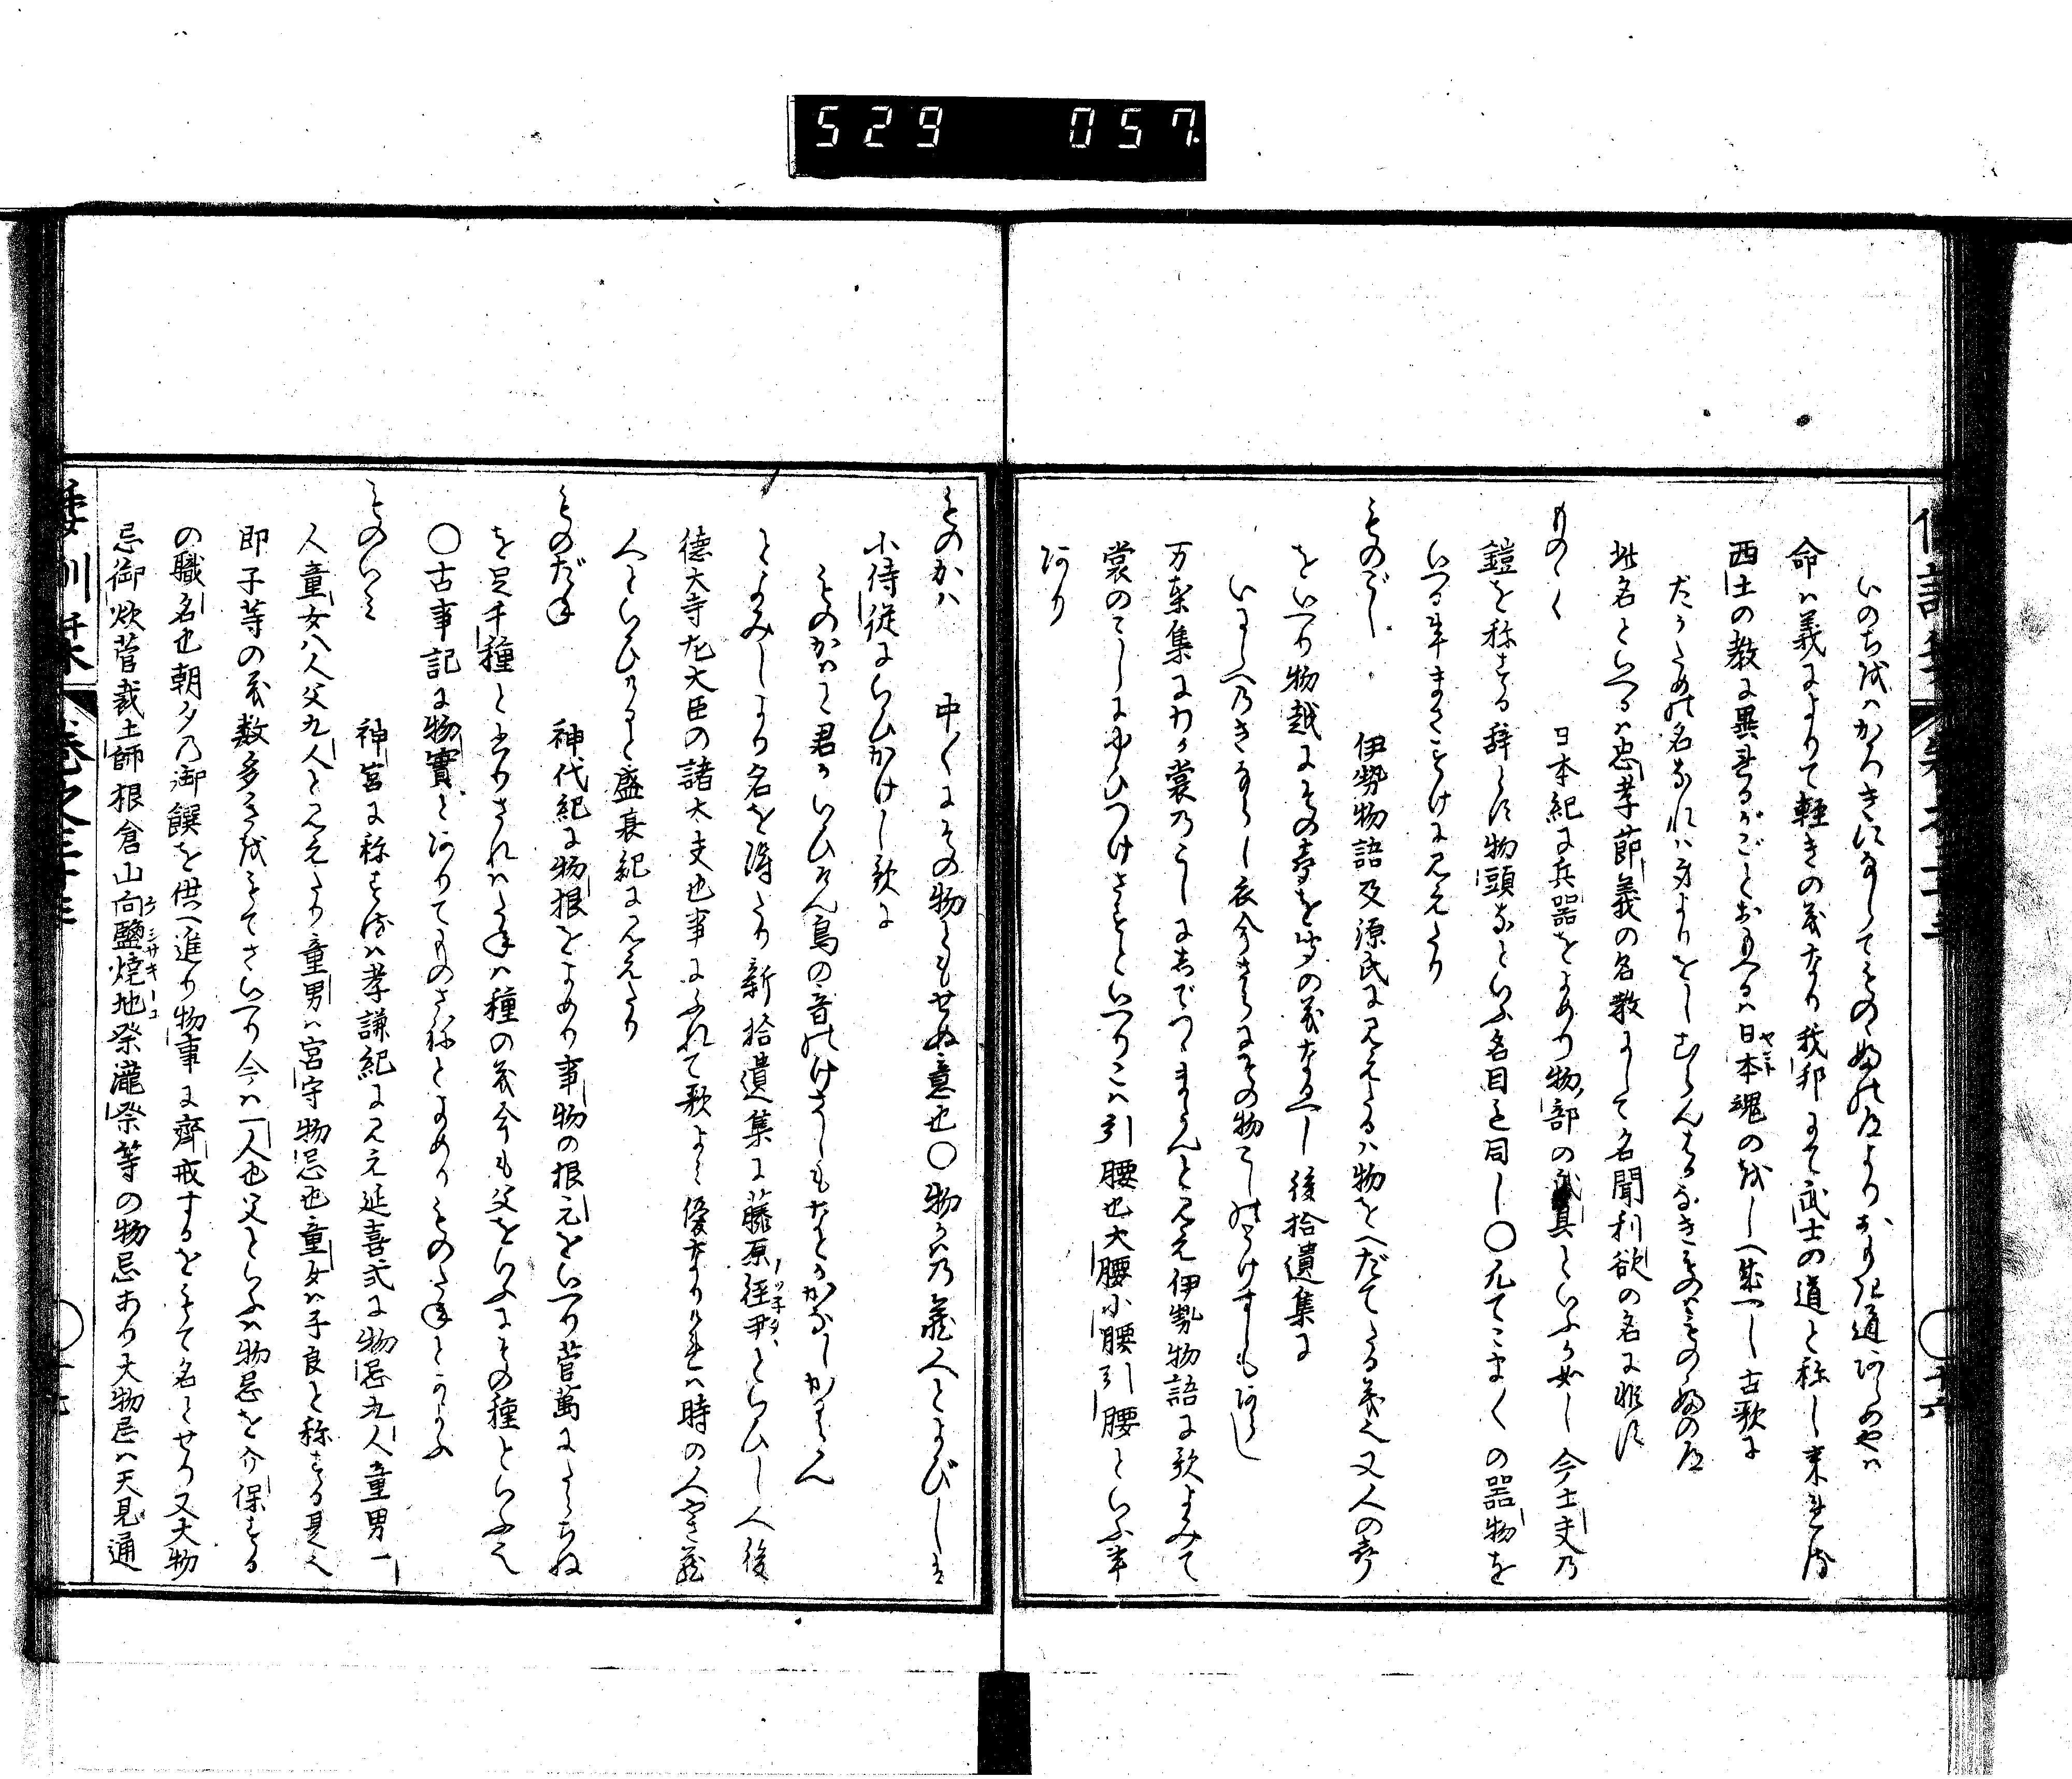 529 057
いのち就ハかろきになしてものゝふの道よりおもき道あらめやハ
命ハ義によりて軽きの義なり我邦にて武士の道と称し来れるは
西土の教に異なるがごとおもへるハ日本魂のをしへ成へし古歌に
たかための名なれハ身よりをしむらんはかなきものハものゝふの道
此名といへるハ忠孝節義の名教にして名聞利欲の名に非す
ものゝく 日本紀に兵器をよめり物部の武具といふか如し今士夫乃
鎧を称する辞とす物頭なといふ名目も同し〇凡てこまくの器物を
いへる事まさすけに見えたり
ものごし 伊勢物語及源氏に見えたるハ物をへだてたる義也又人の声
をいへり物越にその声を聞の義なるへし後拾遺集に
いにしへのきならし衣今さらにその物こしのとけすしもあらし
万葉集にわか裳のこしにしでつまらんと見え伊勢物語に歌よみて
裳のこしにゆひつけさすといへりこハ引腰也大腰小腰引腰といふ事
あり
ものかハ 中くにその物ともせぬ意也〇物かハ乃蔵人とよびしは
小侍従にいひかけし歌に
ものかハと君かいひけん鳥の音のけさしもなとかかなしかるらん
とよみしより名を得たり新拾遺集に藤原経尹といひし人後
徳大寺左大臣の諸大夫也事にふれて歌よみ優なりけれハ時の人やさ蔵
人といひけると盛衰紀に見えたり
ものだね 神代紀に物根をよめり事物の根元をいへり菅萬にたらちね
を足千種と書りされハたねハ種の義今も父をいふにもの種といふ也
〇古事記に物實とありてものざねとよめりものたねとかよふ
ものいみ 神宮に称するは孝謙紀に見え延喜式に物忌九人童男一
人童女八人父九人と見えたり童男ハ宮守物忌也童女ハ子良と称する是也
即子等の義数多きをもてさいへり今ハ一人也父といふハ物忌を介保する
の職名也朝夕乃御饌を供へ進り物事に齊戒するをもて名とせり又大物
忌御炊菅裁土師根倉山向鹽焼地祭瀧祭等の物忌あり大物忌ハ天見通
倭訓栞 巻之三十三